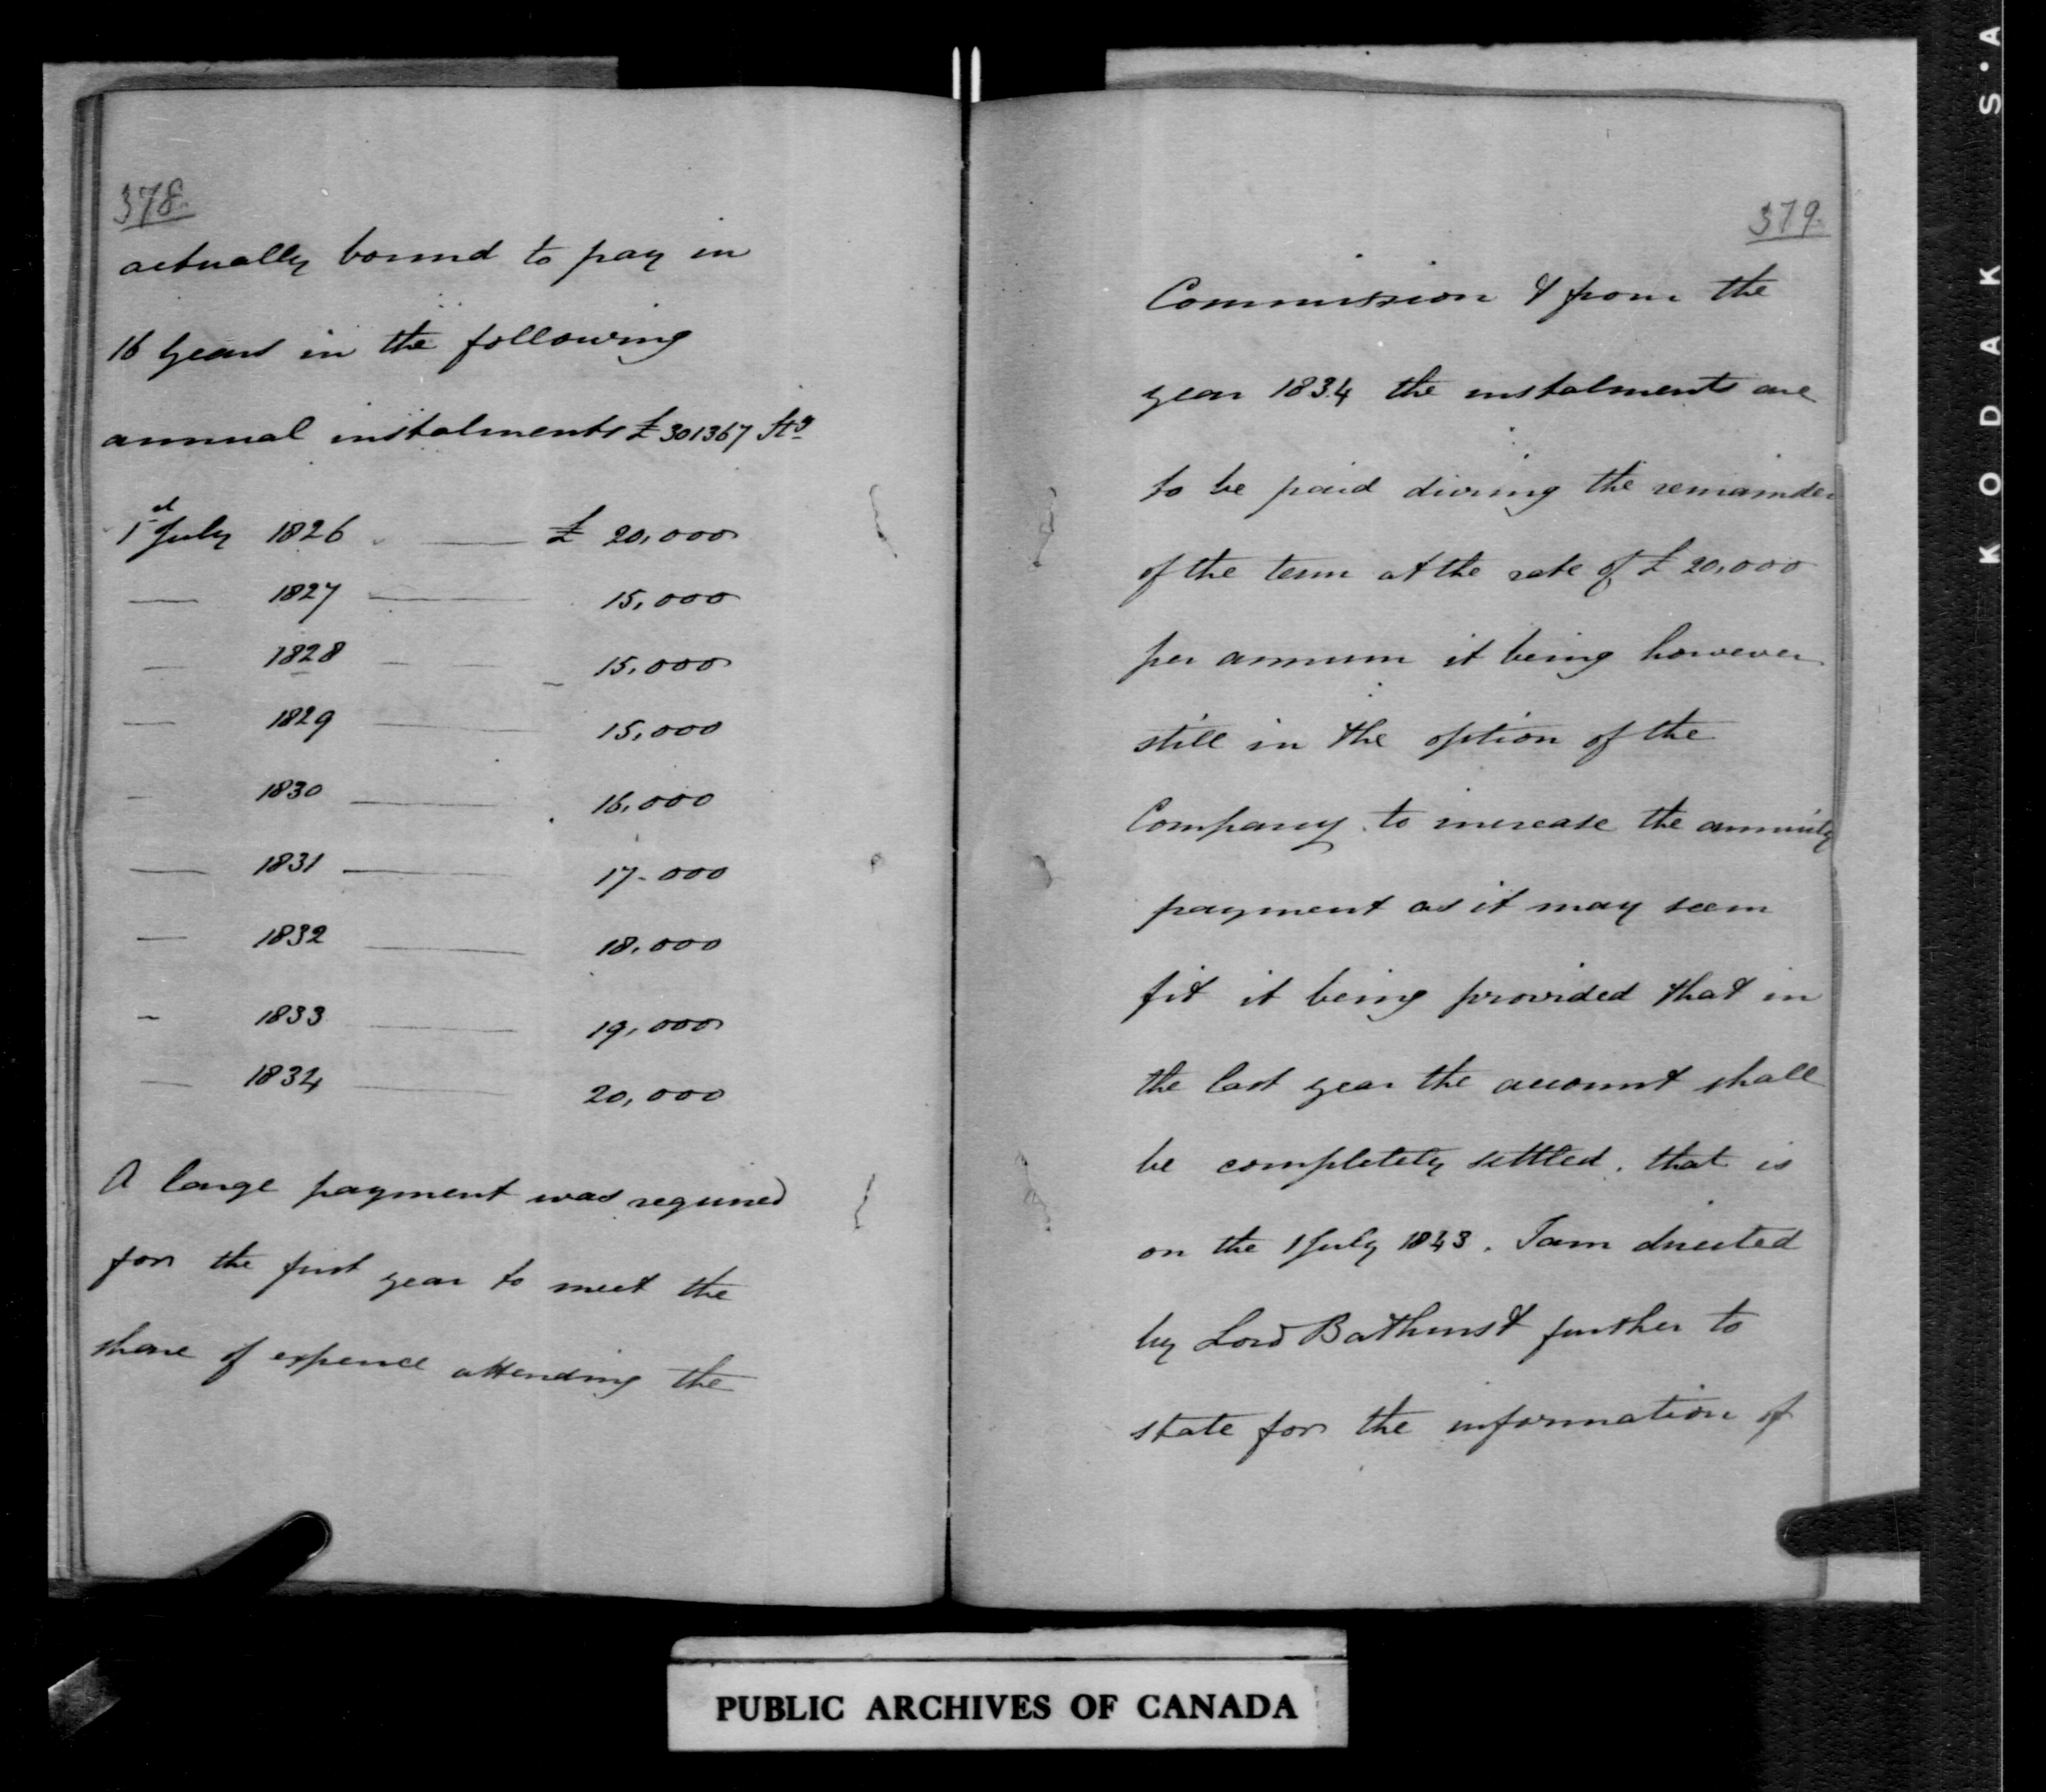 378.
actually bound to pay in
16 years in the following
annual instalments £301367 Stg
1st July 1826 — £ 20,000
— 1827 — 15,000
— 1828 — 15,000
— 1829 — 15,000
— 1830 — 16,000
— 1831 — 17.000
— 1832 — 18,000
— 1833 — 19,000
— 1834 — 20,000
A large payment was required
for the first year to meet the
share of expence attending the
379.
Commission & from the
year 1834 the instalments are
to be paid during the remainder
of the term at the rate of £ 20,000
per annum it being however
still in the option of the
Company to increase the annuity
payment as it may seem
fit it being provided that in
the last year the account shall
be completely settled. that is
on the 1 July 1843. I am directed
by Lord Bathurst further to
state for the information of
PUBLIC ARCHIVES OF CANADA
KODAK S.A